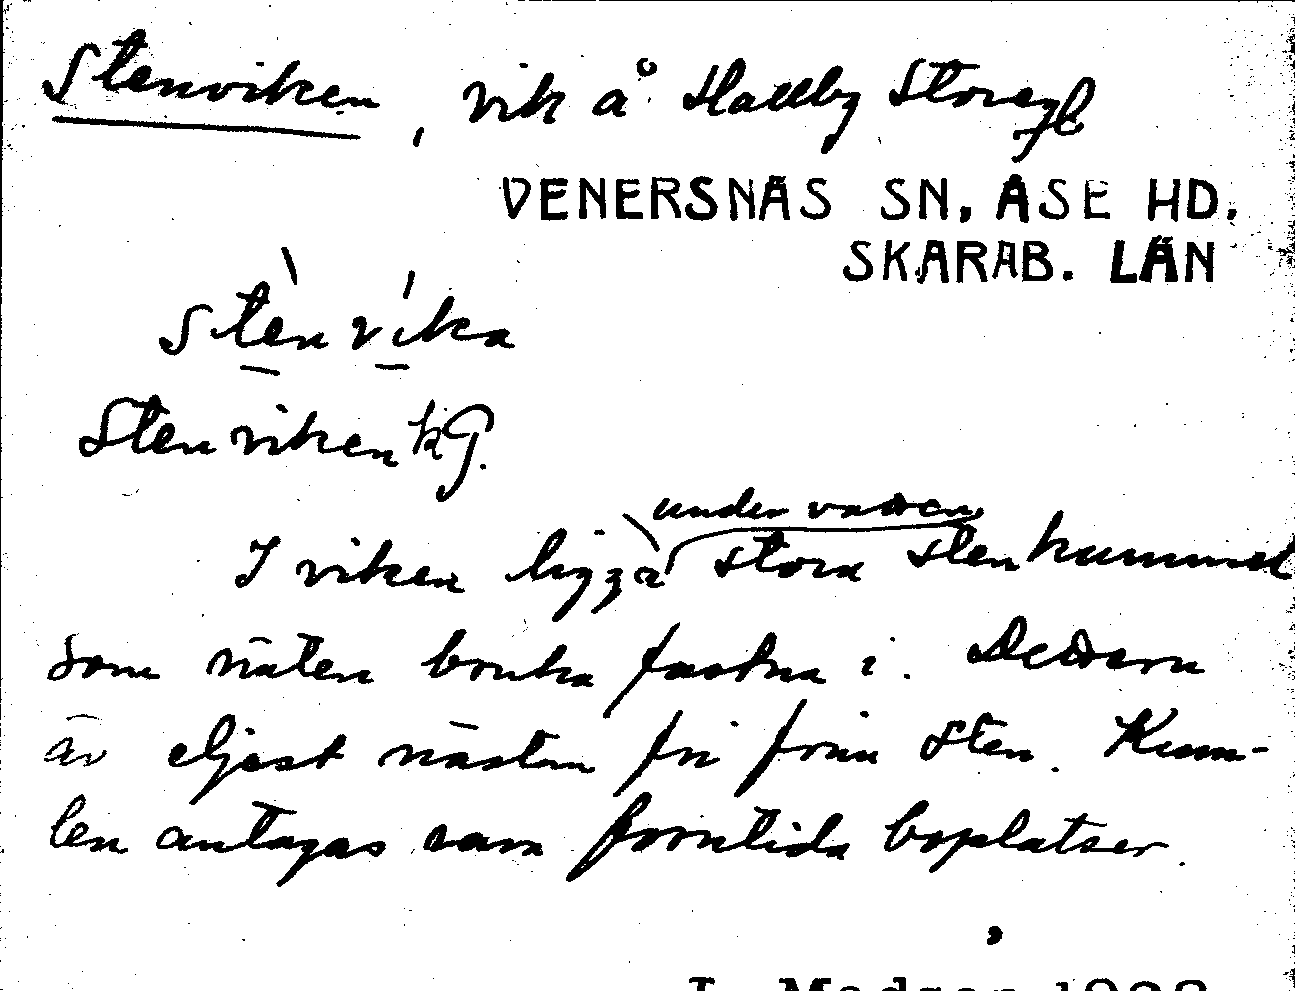 Stenviken, vik å Hälleby Storegl
VENERSNÄS SN, ÅSE HD.
SKARAB. LÄN
Stènvíka
Stenviken kg.
under vatten
I viken ligga stora stenkummel
som näten bruka fastna i.
är eljest nästan fri från sten. Kum-
len antagas vara forntida boplatser.